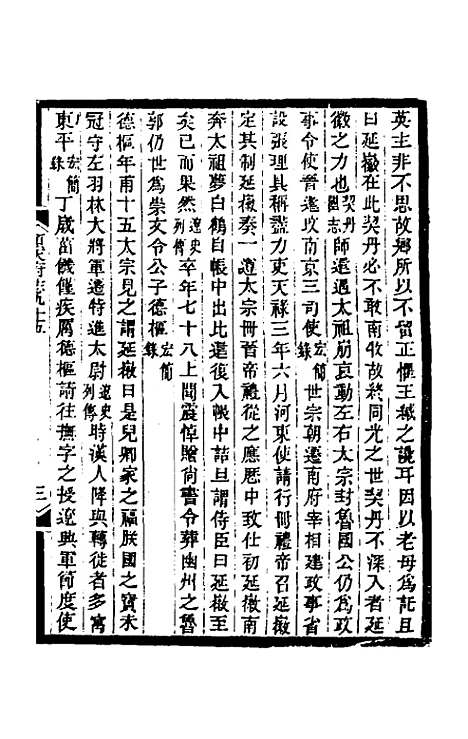 英主非不思故鄉所以不留正懼王緘之讒耳因以老母爲託且
曰延徽在此契丹必不敢南牧故終同光之世契丹不深入者延
徽之力也契丹國志師還遇太祖崩哀動左右太宗封魯國公仍爲政
事令使晉還改南京三司使宏簡錄世宗朝遷南府宰相建政事省
設張理具稱盡力吏天祿三年六月河東使請行冊禮帝召延徽
定其制延徽奏一遵太宗冊晉帝禮從之應曆中致仕初延徽南
奔太祖夢白鶴自帳中出比還復入帳中詰旦謂侍臣曰延徽至
矣已而果然遼史列傳卒年七十八上聞震悼贈尚書令葬幽州之魯
郭仍世爲崇女令公子德樞宏簡錄
德樞年甫十五太宗見之謂延徽曰是兒卿家之福朕國之寶未
冠守左羽林大將軍遷特進太尉遼史列傳時漢人降與轉徙者多寓
東平宏簡錄丁歲菑饑僅疾厲德樞請往撫字之授遼興軍節度使
三